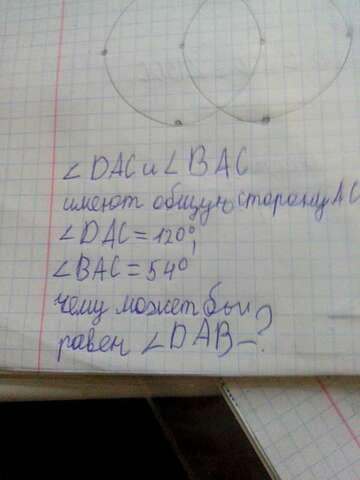 ∠DAC и ∠BAC
имеют общую сторону AC
∠DAC = 120°,
∠BAC = 54°
чему может бы
равен ∠DAB - ?